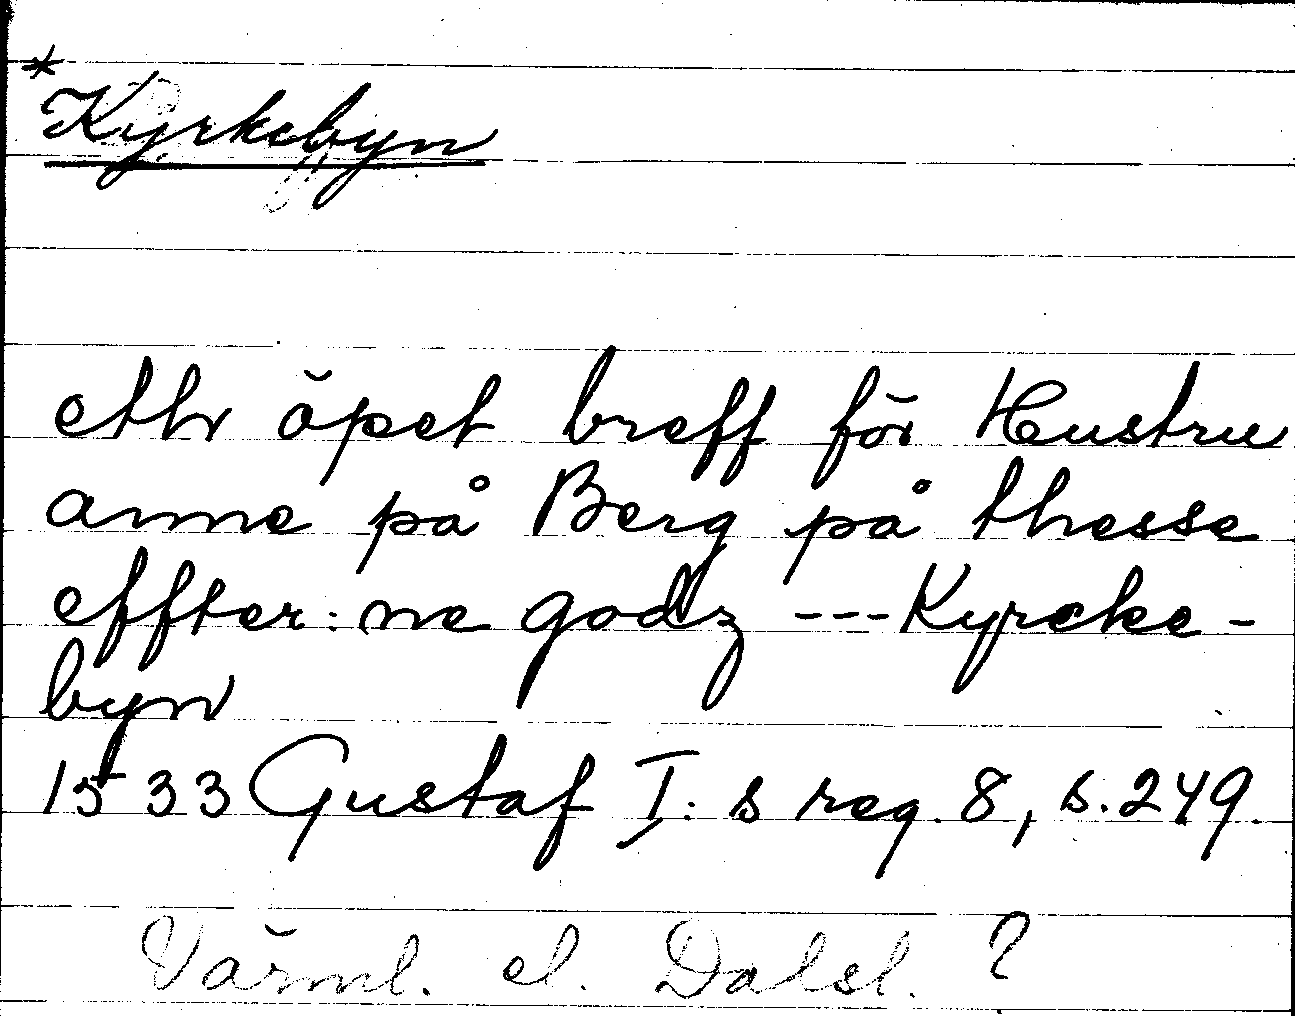 *
Kyrkebyn
etth öpet breff för Hustru
anne på Berg på thesse
effter: ne godz --- Kyrcke-
byn
1533 Gustaf I: s reg. 8, s. 249.
Värml. el. Dalsl. ?